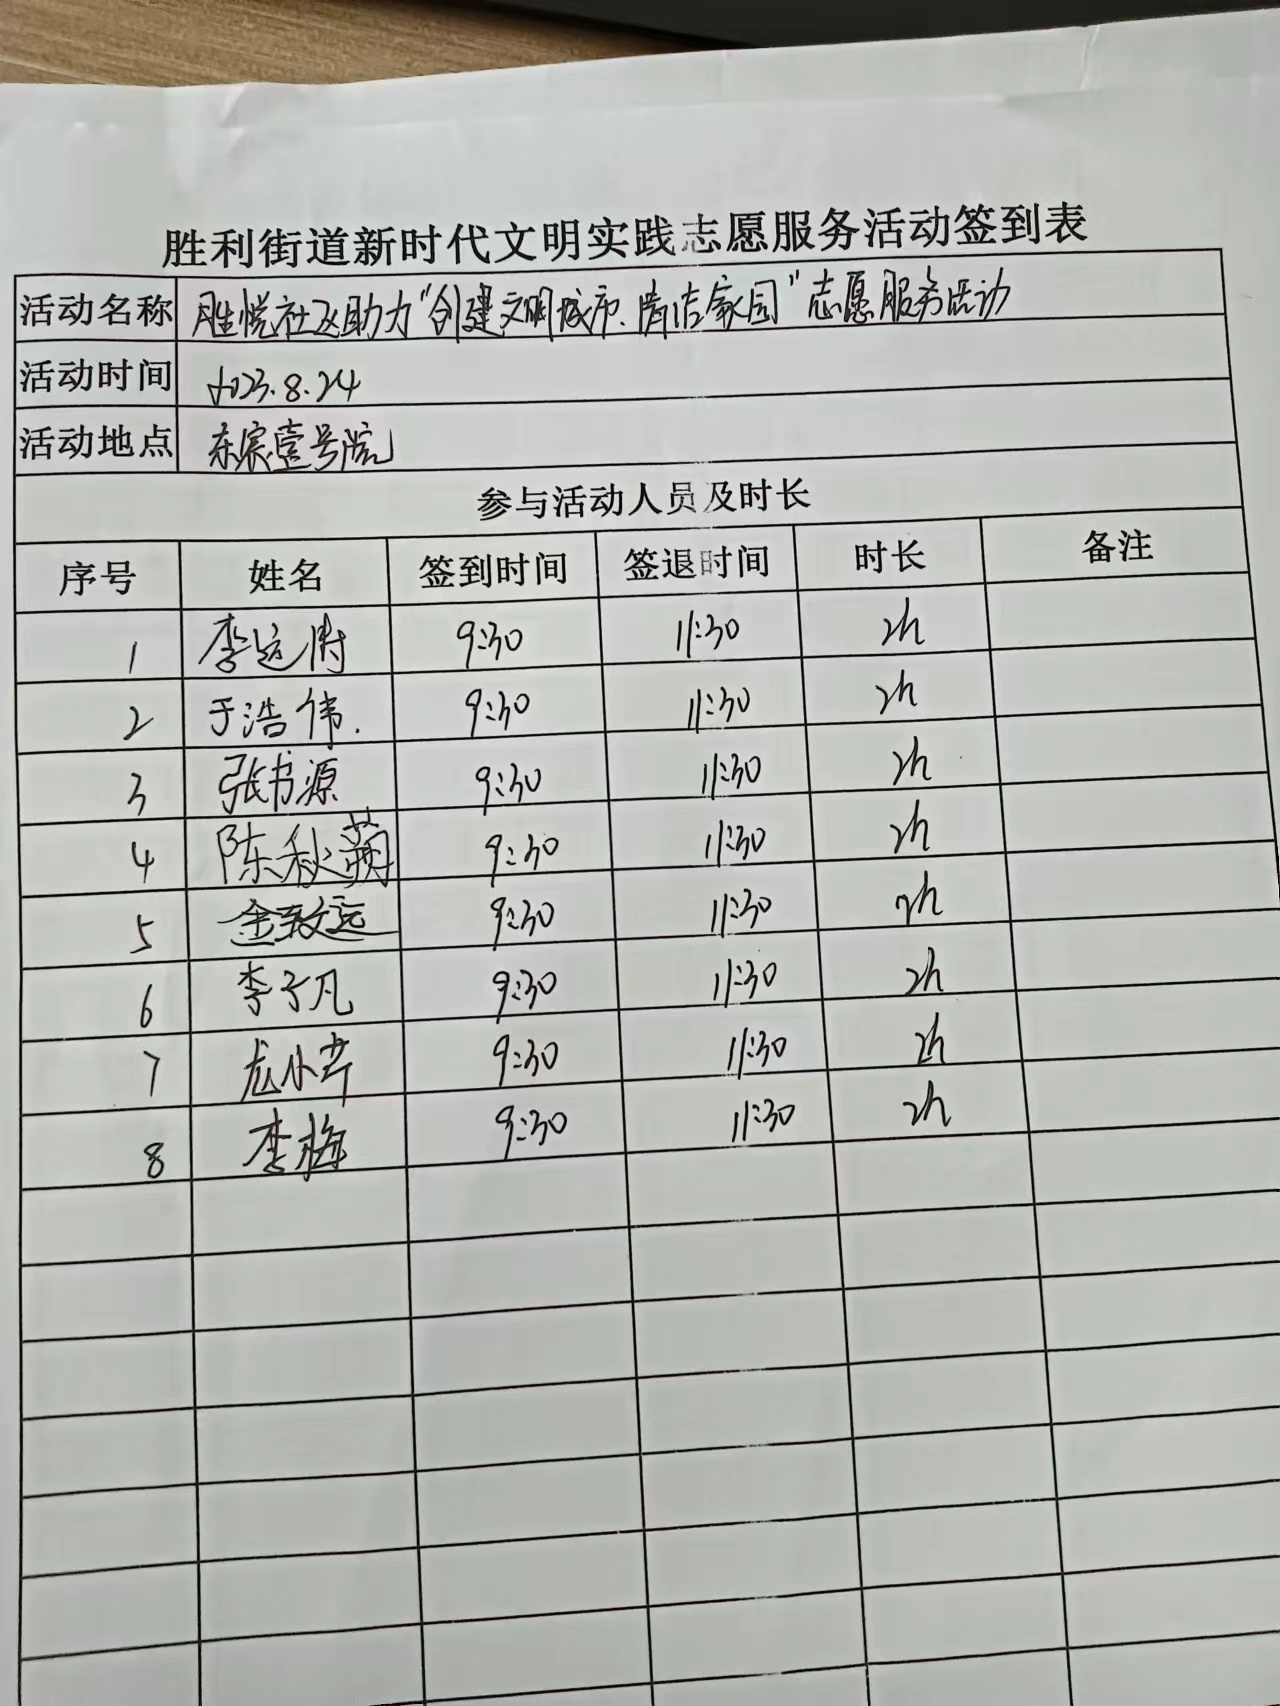 胜利街道新时代文明实践志愿服务活动签到表
活动名称 胜悦社区助力“创建文明城市、清洁家园”志愿服务活动
活动时间 2023.8.24
活动地点 东宸壹号院
参与活动人员及时长
序号 姓名 签到时间 签退时间 时长 备注
1 李运涛 9:30 11:30 2h
2 于浩伟. 9:30 11:30 2h
3 张书源 9:30 11:30 2h
4 陈秋萍 9:30 11:30 2h
5 金致远 9:30 11:30 2h
6 李子凡 9:30 11:30 2h
7 尤小芹 9:30 11:30 2h
8 李梅 9:30 11:30 2h